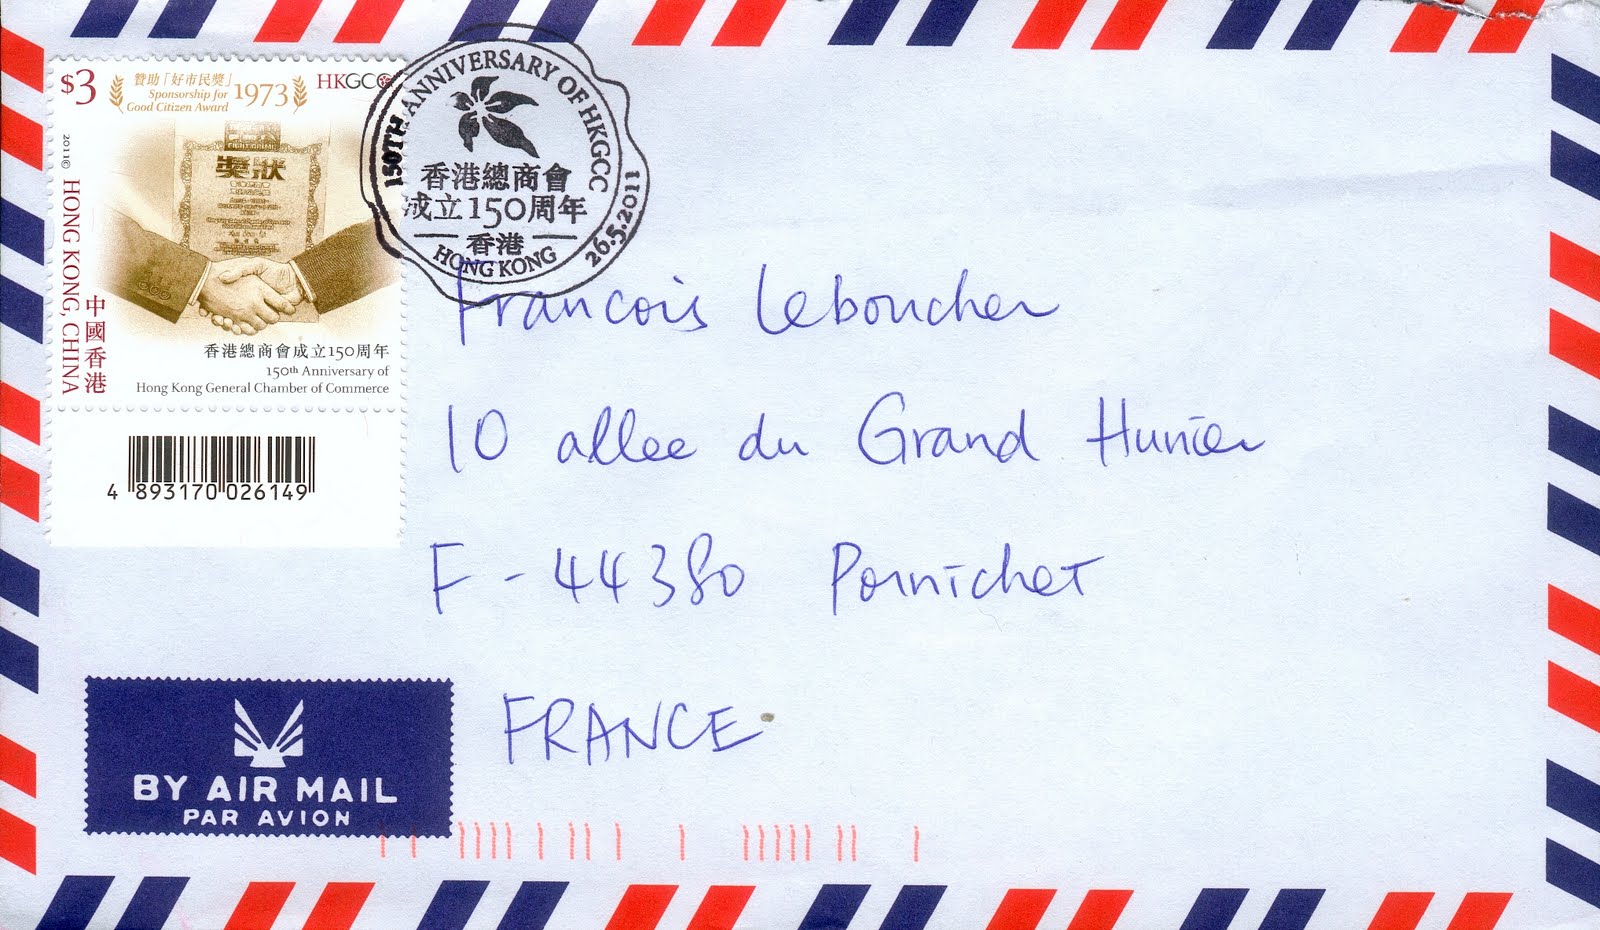 $3
贊助「好市民獎」
Sponsorship for
Good Citizen Award
1973
HKGCC
2011©
HONG KONG, CHINA
中國香港
FIGHT CRIME
獎狀
香港總商會成立150周年
150th Anniversary of
Hong Kong General Chamber of Commerce
4 893170 026149
150TH ANNIVERSARY OF HKGCC
香港總商會
成立150周年
香港
HONG KONG
26.5.2011
Francois Leboucher
10 allee du Grand Hunier
F - 44380 Pornichet
FRANCE
BY AIR MAIL
PAR AVION